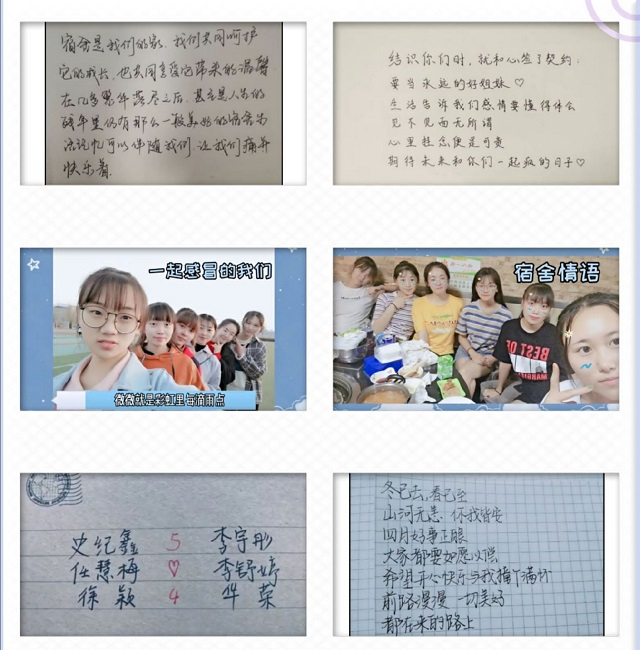 宿舍是我们的家，我们共同呵护
它的成长，也共同享受它带来的温馨
在几多繁华落尽之后，甚至是人生的
残年里仍有那么一般美好的宿舍为
法记忆可以伴随我们，让我们痛并
快乐着。
结识你们时，就和心签了契约：
要当永远的好姐妹♡
生活告诉我们感情要懂得体会
见不见面无所谓
心里挂念便是可贵
期待未来和你们一起疯的日子♡
一起感冒的我们
微微就是彩虹里每滴雨点
宿舍情语
BEST OF
史纪鑫 5 李宇彤
任慧梅 ♡ 李舒婷
徐颖 4 华荣
冬已去，春已至
山河无恙 你我皆安
四月好事正酿
大家都要如愿以偿
希望开心快乐与我撞个满怀
前路漫漫 一切美好
都在来的路上